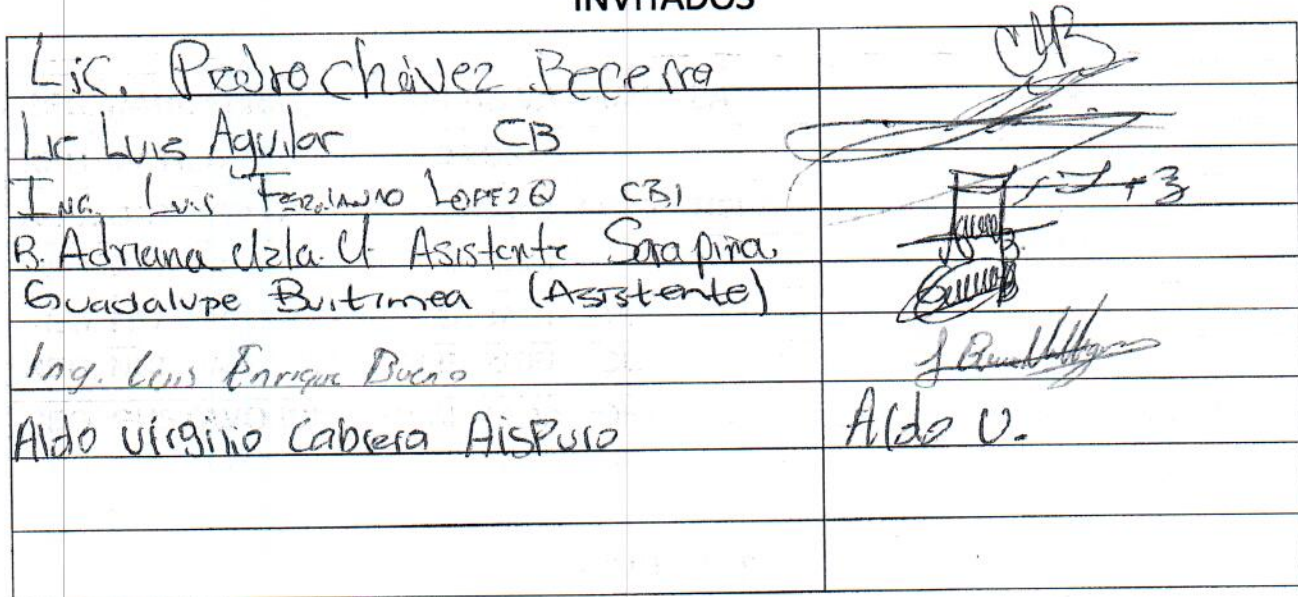 INVITADOS
Lic. Pedro Chávez Becerra
Lic. Luis Aguilar CB
Ing. Luis Fernando Lopez Q CB1
B. Adriana Asistente
Guadalupe Buitimea (Asistente)
Ing. Luis Enrique Bueno
Aldo Virginio Cabrera AisPuro Aldo V.